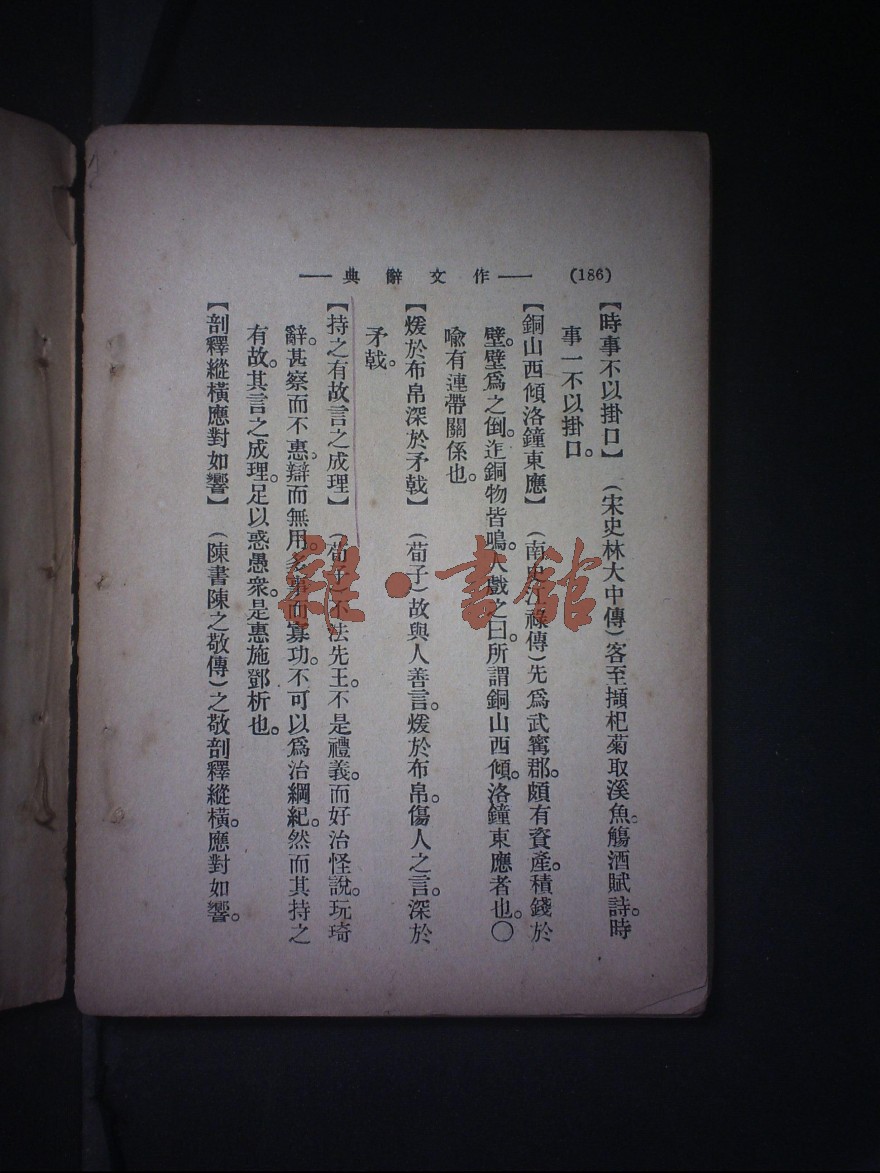 (186)
——作文辭典——
【時事不以掛口】（宋史林大中傳）客至擷杞菊取溪魚。觴酒賦詩。時
事一不以掛口。
【銅山西傾洛鐘東應】（南史江祿傳）先爲武寗郡。頗有資產。積錢於
壁。壁爲之倒。迮銅物皆鳴。人戲之曰。所謂銅山西傾。洛鐘東應者也。〇
喩有連帶關係也。
【煖於布帛深於矛戟】（荀子）故與人善言。煖於布帛。傷人之言。深於
矛戟。
【持之有故言之成理】（荀子）不法先王。不是禮義。而好治怪說。玩琦
辭。甚察而不惠。辯而無用。多事而寡功。不可以爲治綱紀。然而其持之
有故。其言之成理。足以惑愚衆。是惠施鄧析也。
【剖釋縱橫應對如響】（陳書陳之敬傳）之敬剖釋縱橫。應對如響。
雜·書館